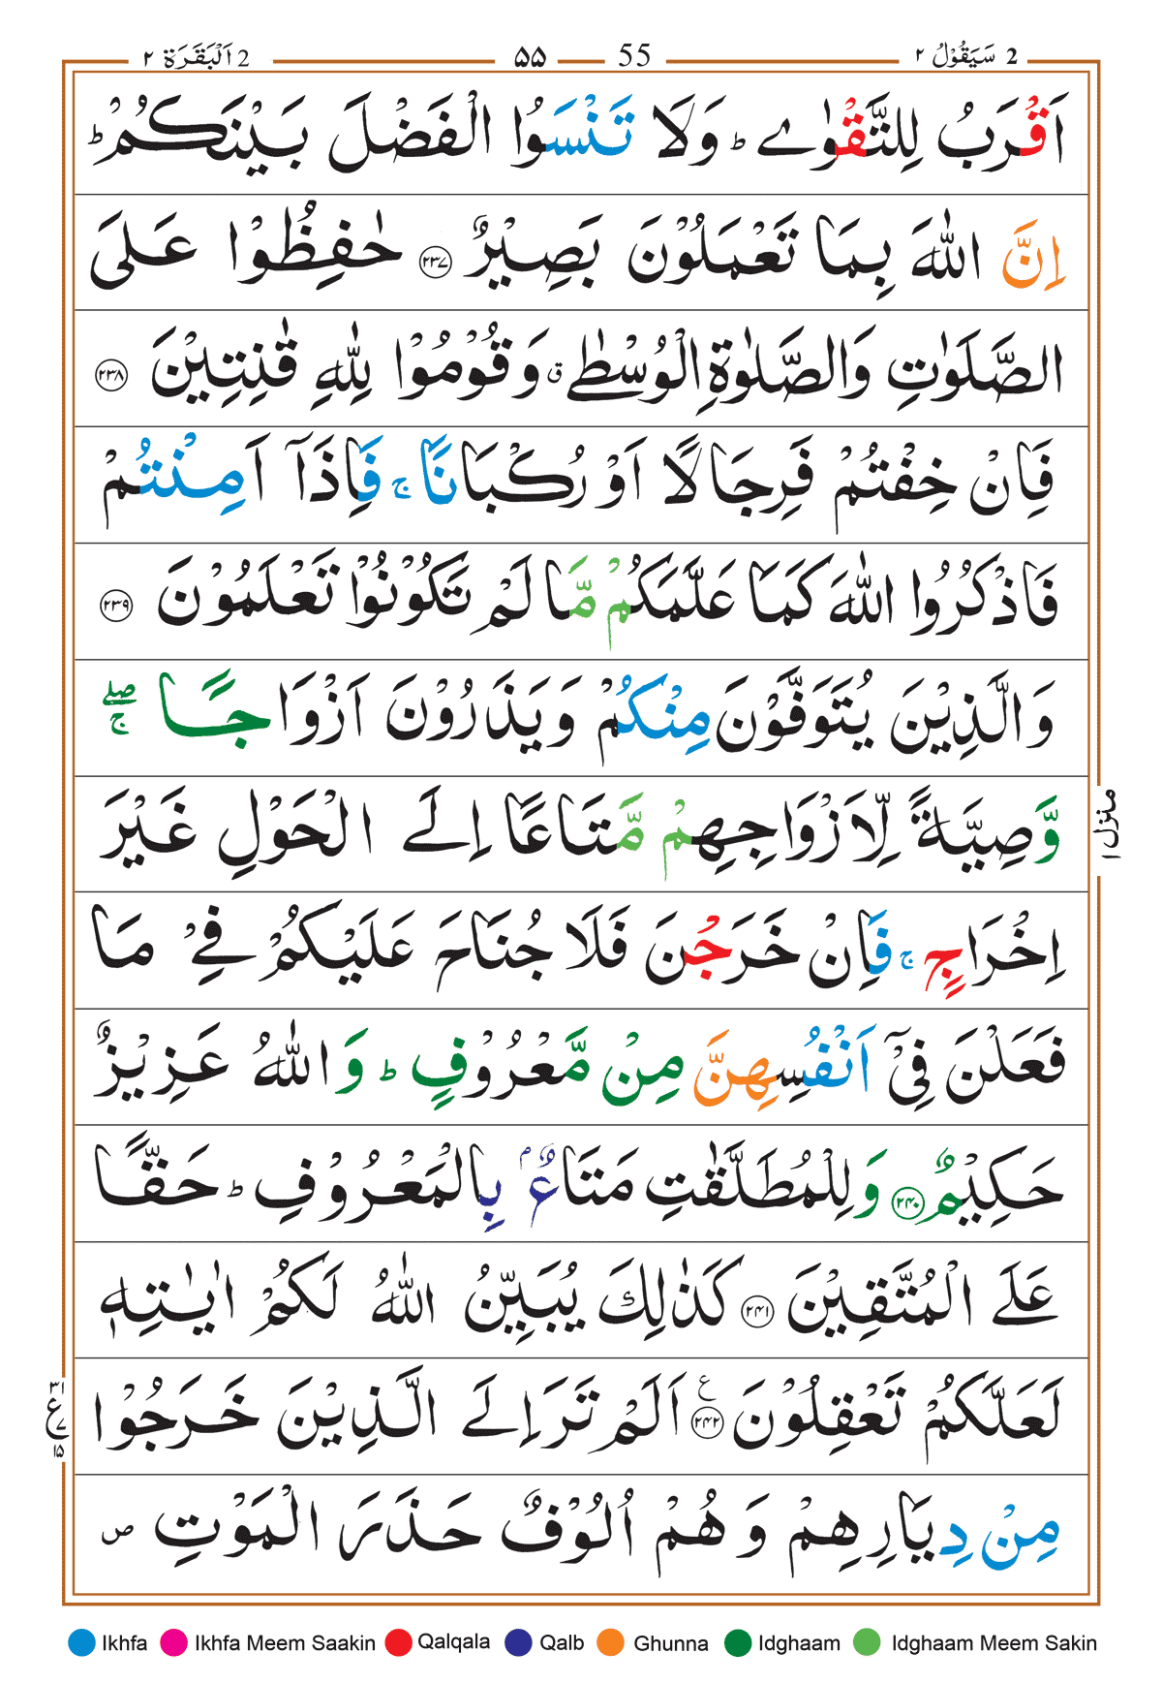 2 سَيَقُوْلُ ٢ 55 ٥٥ 2 اَلْبَقَرَة ٢
اَقْرَبُ لِلتَّقْوٰى ؕ وَلَا تَنْسَوُا الْفَضْلَ بَيْنَكُمْ ؕ
اِنَّ اللّٰهَ بِمَا تَعْمَلُوْنَ بَصِيْرٌ ﴿٢٣٧﴾ حٰفِظُوْا عَلَى
الصَّلَوٰتِ وَالصَّلٰوةِ الْوُسْطٰى ۗ وَقُوْمُوْا لِلّٰهِ قٰنِتِيْنَ ﴿٢٣٨﴾
فَاِنْ خِفْتُمْ فَرِجَالًا اَوْ رُكْبَانًا ۚ فَاِذَآ اَمِنْتُمْ
فَاذْكُرُوا اللّٰهَ كَمَا عَلَّمَكُمْ مَّا لَمْ تَكُوْنُوْا تَعْلَمُوْنَ ﴿٢٣٩﴾
وَالَّذِيْنَ يُتَوَفَّوْنَ مِنْكُمْ وَيَذَرُوْنَ اَزْوَاجًا ۖۚ
وَّصِيَّةً لِّاَزْوَاجِهِمْ مَّتَاعًا اِلَى الْحَوْلِ غَيْرَ
اِخْرَاجٍ ۚ فَاِنْ خَرَجْنَ فَلَا جُنَاحَ عَلَيْكُمْ فِيْ مَا
فَعَلْنَ فِيْٓ اَنْفُسِهِنَّ مِنْ مَّعْرُوْفٍ ؕ وَاللّٰهُ عَزِيْزٌ
حَكِيْمٌ ﴿٢٤٠﴾ وَلِلْمُطَلَّقٰتِ مَتَاعٌ ۢ بِالْمَعْرُوْفِ ؕ حَقًّا
عَلَى الْمُتَّقِيْنَ ﴿٢٤١﴾ كَذٰلِكَ يُبَيِّنُ اللّٰهُ لَكُمْ اٰيٰتِهٖ
لَعَلَّكُمْ تَعْقِلُوْنَ ﴿٢٤٢﴾ ع اَلَمْ تَرَ اِلَى الَّذِيْنَ خَرَجُوْا
مِنْ دِيَارِهِمْ وَهُمْ اُلُوْفٌ حَذَرَ الْمَوْتِ ۪
منزل ١
٣١
ع ٧
١٥
Ikhfa Ikhfa Meem Saakin Qalqala Qalb Ghunna Idghaam Idghaam Meem Sakin